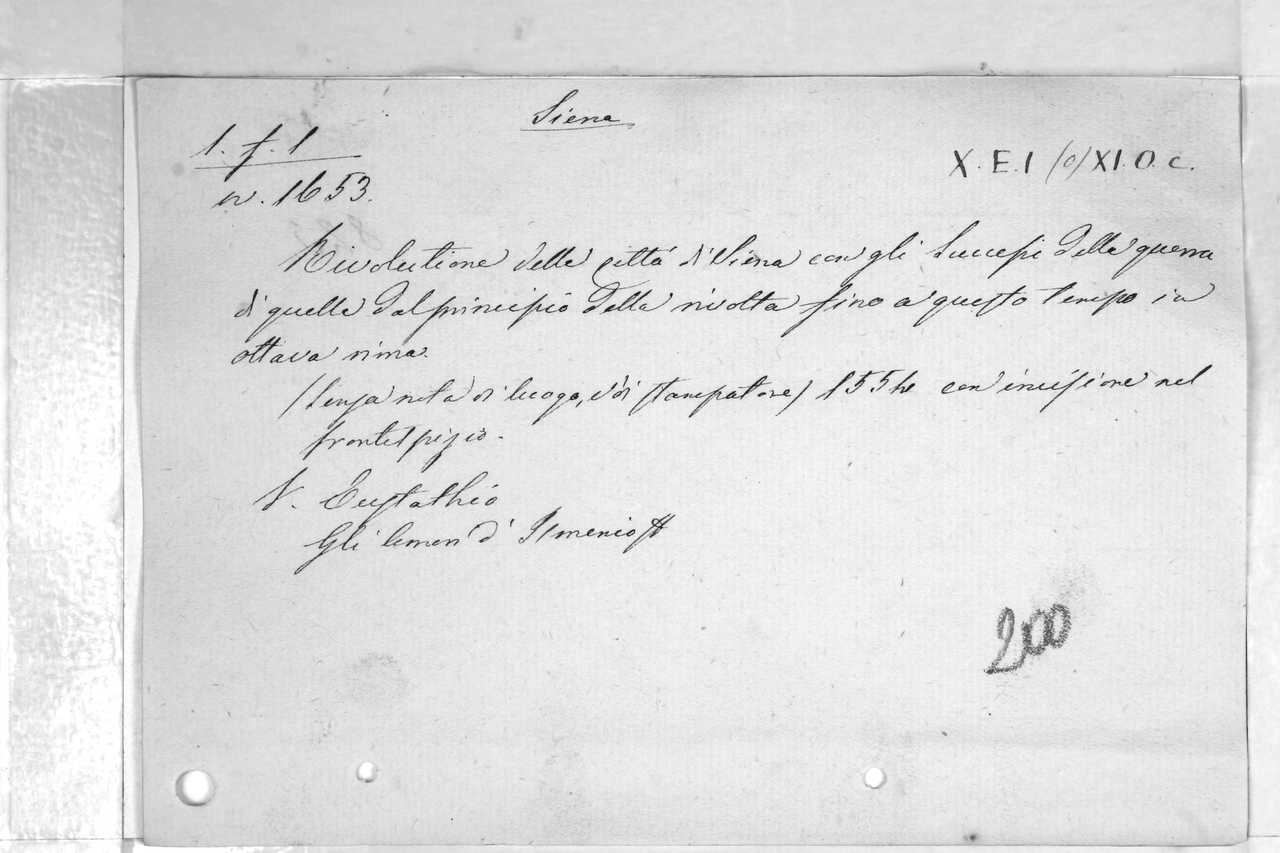 Siena
1. f. 1
n. 1653.
X. E. I /o/ XI. O. c.
Rivolutione della città di Siena con gli Successi della guerra
di quella dal principio della rivolta fino a questo tempo in
ottava rima.
(Senza nota di luogo, e di stampatore) 1554 con incisione nel
frontespizio.
V. Eustathio
Gli amori d' Ismenio
200